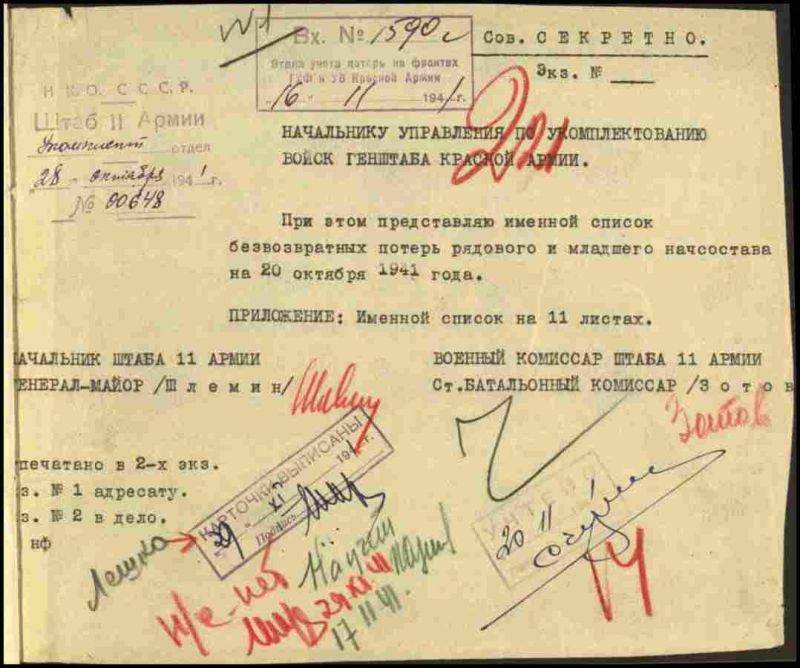 №1
Вх. № 1590с
Отдела учета потерь на фронтах
ГУФ и УВ Красной Армии
"16" 11 1941г.
Сов. СЕКРЕТНО.
Экз. №
Н К О. С С С. Р.
Штаб 11 Армии
отдел
"28" октября 1941г.
№ 00648
НАЧАЛЬНИКУ УПРАВЛЕНИЯ ПО УКОМПЛЕКТОВАНИЮ
ВОЙСК ГЕНШТАБА КРАСНОЙ АРМИИ.
При этом представляю именной список
безвозвратных потерь рядового и младшего начсостава
на 20 октября 1941 года.
ПРИЛОЖЕНИЕ: Именной список на 11 листах.
АЧАЛЬНИК ШТАБА 11 АРМИИ
ЕНЕРАЛ-МАЙОР /Ш л е м и н/
ВОЕННЫЙ КОМИССАР ШТАБА 11 АРМИИ
Ст.БАТАЛЬОННЫЙ КОМИССАР /З о т о в
Зотов
печатано в 2-х экз.
з. № 1 адресату.
з. № 2 в дело.
нф
КАРТОЧКИ ВЫПИСАНЫ
"29" XI 1941г.
Подпись
УЧТЕНО
20 11
Лешко
29 XI 41
17 11 41.